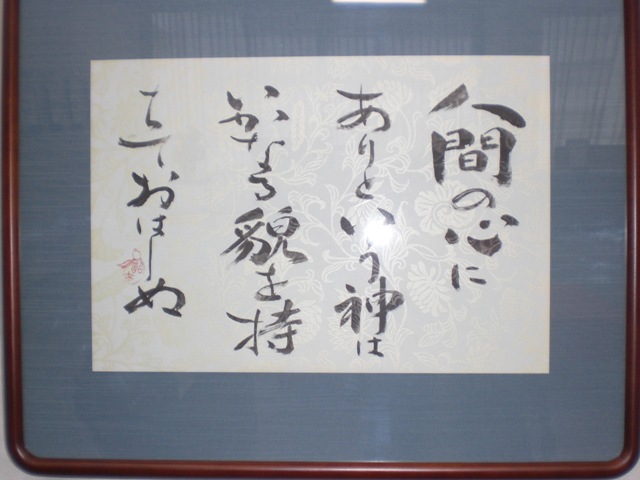 人間の心に
ありという神は
いかなる貌を持
ちておはしぬ